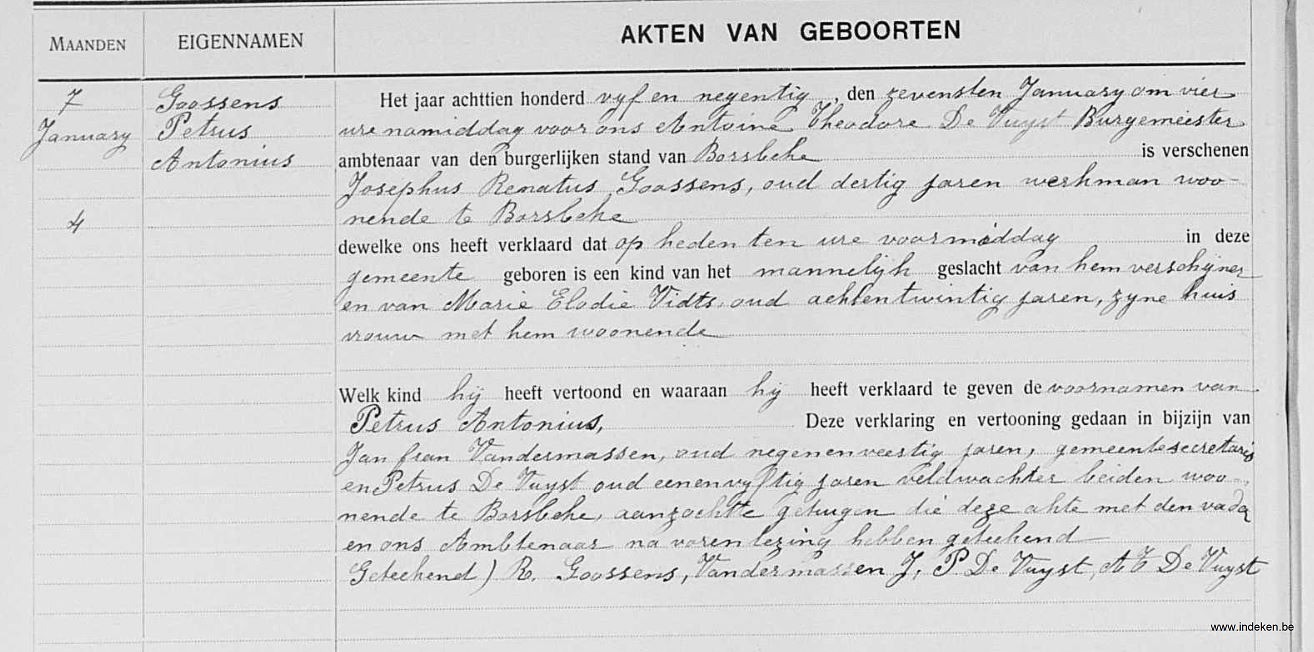 MAANDEN
EIGENNAMEN
AKTEN VAN GEBOORTEN
7
January
4
Goossens
Petrus
Antonius
Het jaar achttien honderd vyf en negentig, den zevensten January om vier
ure namiddag voor ons Antoine Theodore De Vuyst Burgemeester
ambtenaar van den burgerlijken stand van Borsbeke is verschenen
Josephus Renatus Goossens, oud dertig jaren werkman woo-
nende te Borsbeke
dewelke ons heeft verklaard dat op heden ten ure voormiddag in deze
gemeente geboren is een kind van het mannelijk geslacht van hem verschijner
en van Marie Elodie Vidts oud achtentwintig jaren, zyne huis
vrouw met hem woonende
Welk kind hij heeft vertoond en waaraan hij heeft verklaard te geven de voornamen van
Petrus Antonius, Deze verklaring en vertooning gedaan in bijzijn van
Jan fran Vandermassen, oud negenenveertig jaren, gemeentesecretaris
en Petrus De Vuyst oud eenenvyftig jaren veldwachter beiden woo-
nende te Borsbeke, aanzochtte getuigen die deze akte met den vader
en ons Ambtenaar na voorenlezing hebben geteekend
Geteekend) R. Goossens, Vandermassen J, P De Vuyst, A T De Vuyst
www.indeken.be